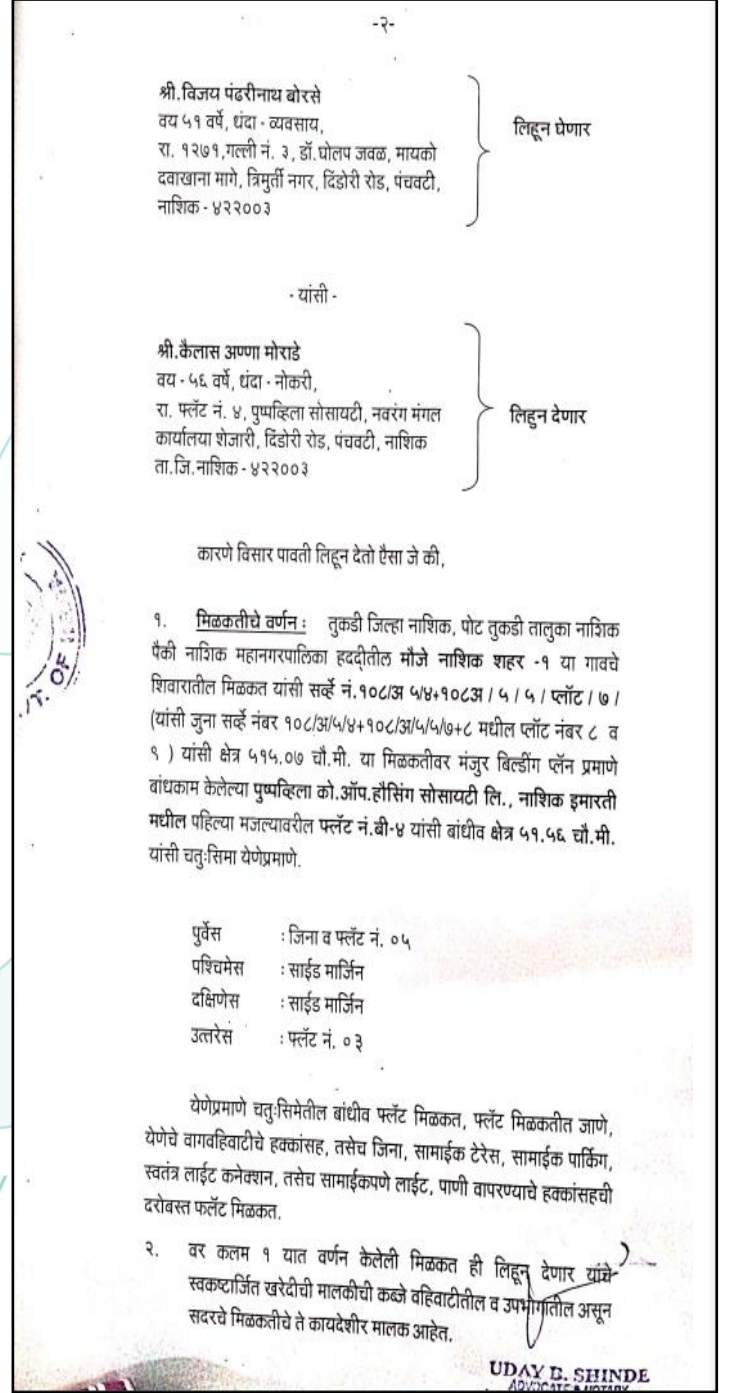 -२-
श्री.विजय पंढरीनाथ बोरसे
वय ५१ वर्षे, धंदा - व्यवसाय,
रा. १२७१,गल्ली नं. ३, डॉ.घोलप जवळ, मायको
दवाखाना मागे, त्रिमुर्ती नगर, दिंडोरी रोड, पंचवटी,
नाशिक - ४२२००३
लिहून घेणार
- यांसी -
श्री.कैलास अण्णा मोराडे
वय - ५६ वर्षे, धंदा - नोकरी,
रा. फ्लॅट नं. ४, पुष्पव्हिला सोसायटी, नवरंग मंगल
कार्यालया शेजारी, दिंडोरी रोड, पंचवटी, नाशिक
ता.जि.नाशिक - ४२२००३
लिहुन देणार
कारणे विसार पावती लिहून देतो ऐसा जे की,
१. मिळकतीचे वर्णन : तुकडी जिल्हा नाशिक, पोट तुकडी तालुका नाशिक
पैकी नाशिक महानगरपालिका हददीतील मौजे नाशिक शहर -१ या गावचे
शिवारातील मिळकत यांसी सर्व्हे नं.१०८/अ ५/४+१०८अ / ५ / ५ / प्लॉट / ७ /
(यांसी जुना सर्व्हे नंबर १०८/अ/५/४+१०८/अ/५/५/७+८ मधील प्लॉट नंबर ८ व
९ ) यांसी क्षेत्र ५१५.०७ चौ.मी. या मिळकतीवर मंजुर बिल्डींग प्लॅन प्रमाणे
बांधकाम केलेल्या पुष्पव्हिला को.ऑप.हौसिंग सोसायटी लि., नाशिक इमारती
मधील पहिल्या मजल्यावरील फ्लॅट नं.बी-४ यांसी बांधीव क्षेत्र ५१.५६ चौ.मी.
यांसी चतुःसिमा येणेप्रमाणे.
पुर्वेस : जिना व फ्लॅट नं. ०५
पश्चिमेस : साईड मार्जिन
दक्षिणेस : साईड मार्जिन
उत्तरेस : फ्लॅट नं. ०३
येणेप्रमाणे चतुःसिमेतील बांधीव फ्लॅट मिळकत, फ्लॅट मिळकतीत जाणे,
येणेचे वागवहिवाटीचे हक्कांसह, तसेच जिना, सामाईक टेरेस, सामाईक पार्किंग,
स्वतंत्र लाईट कनेक्शन, तसेच सामाईकपणे लाईट, पाणी वापरण्याचे हक्कांसहची
दरोबस्त फलॅट मिळकत.
२. वर कलम १ यात वर्णन केलेली मिळकत ही लिहून देणार यांचे
स्वकष्टार्जित खरेदीची मालकीची कब्जे वहिवाटीतील व उपभोगातील असून
सदरचे मिळकतीचे ते कायदेशीर मालक आहेत.
UDAY B. SHINDE
ADVOCATE & NOTARY